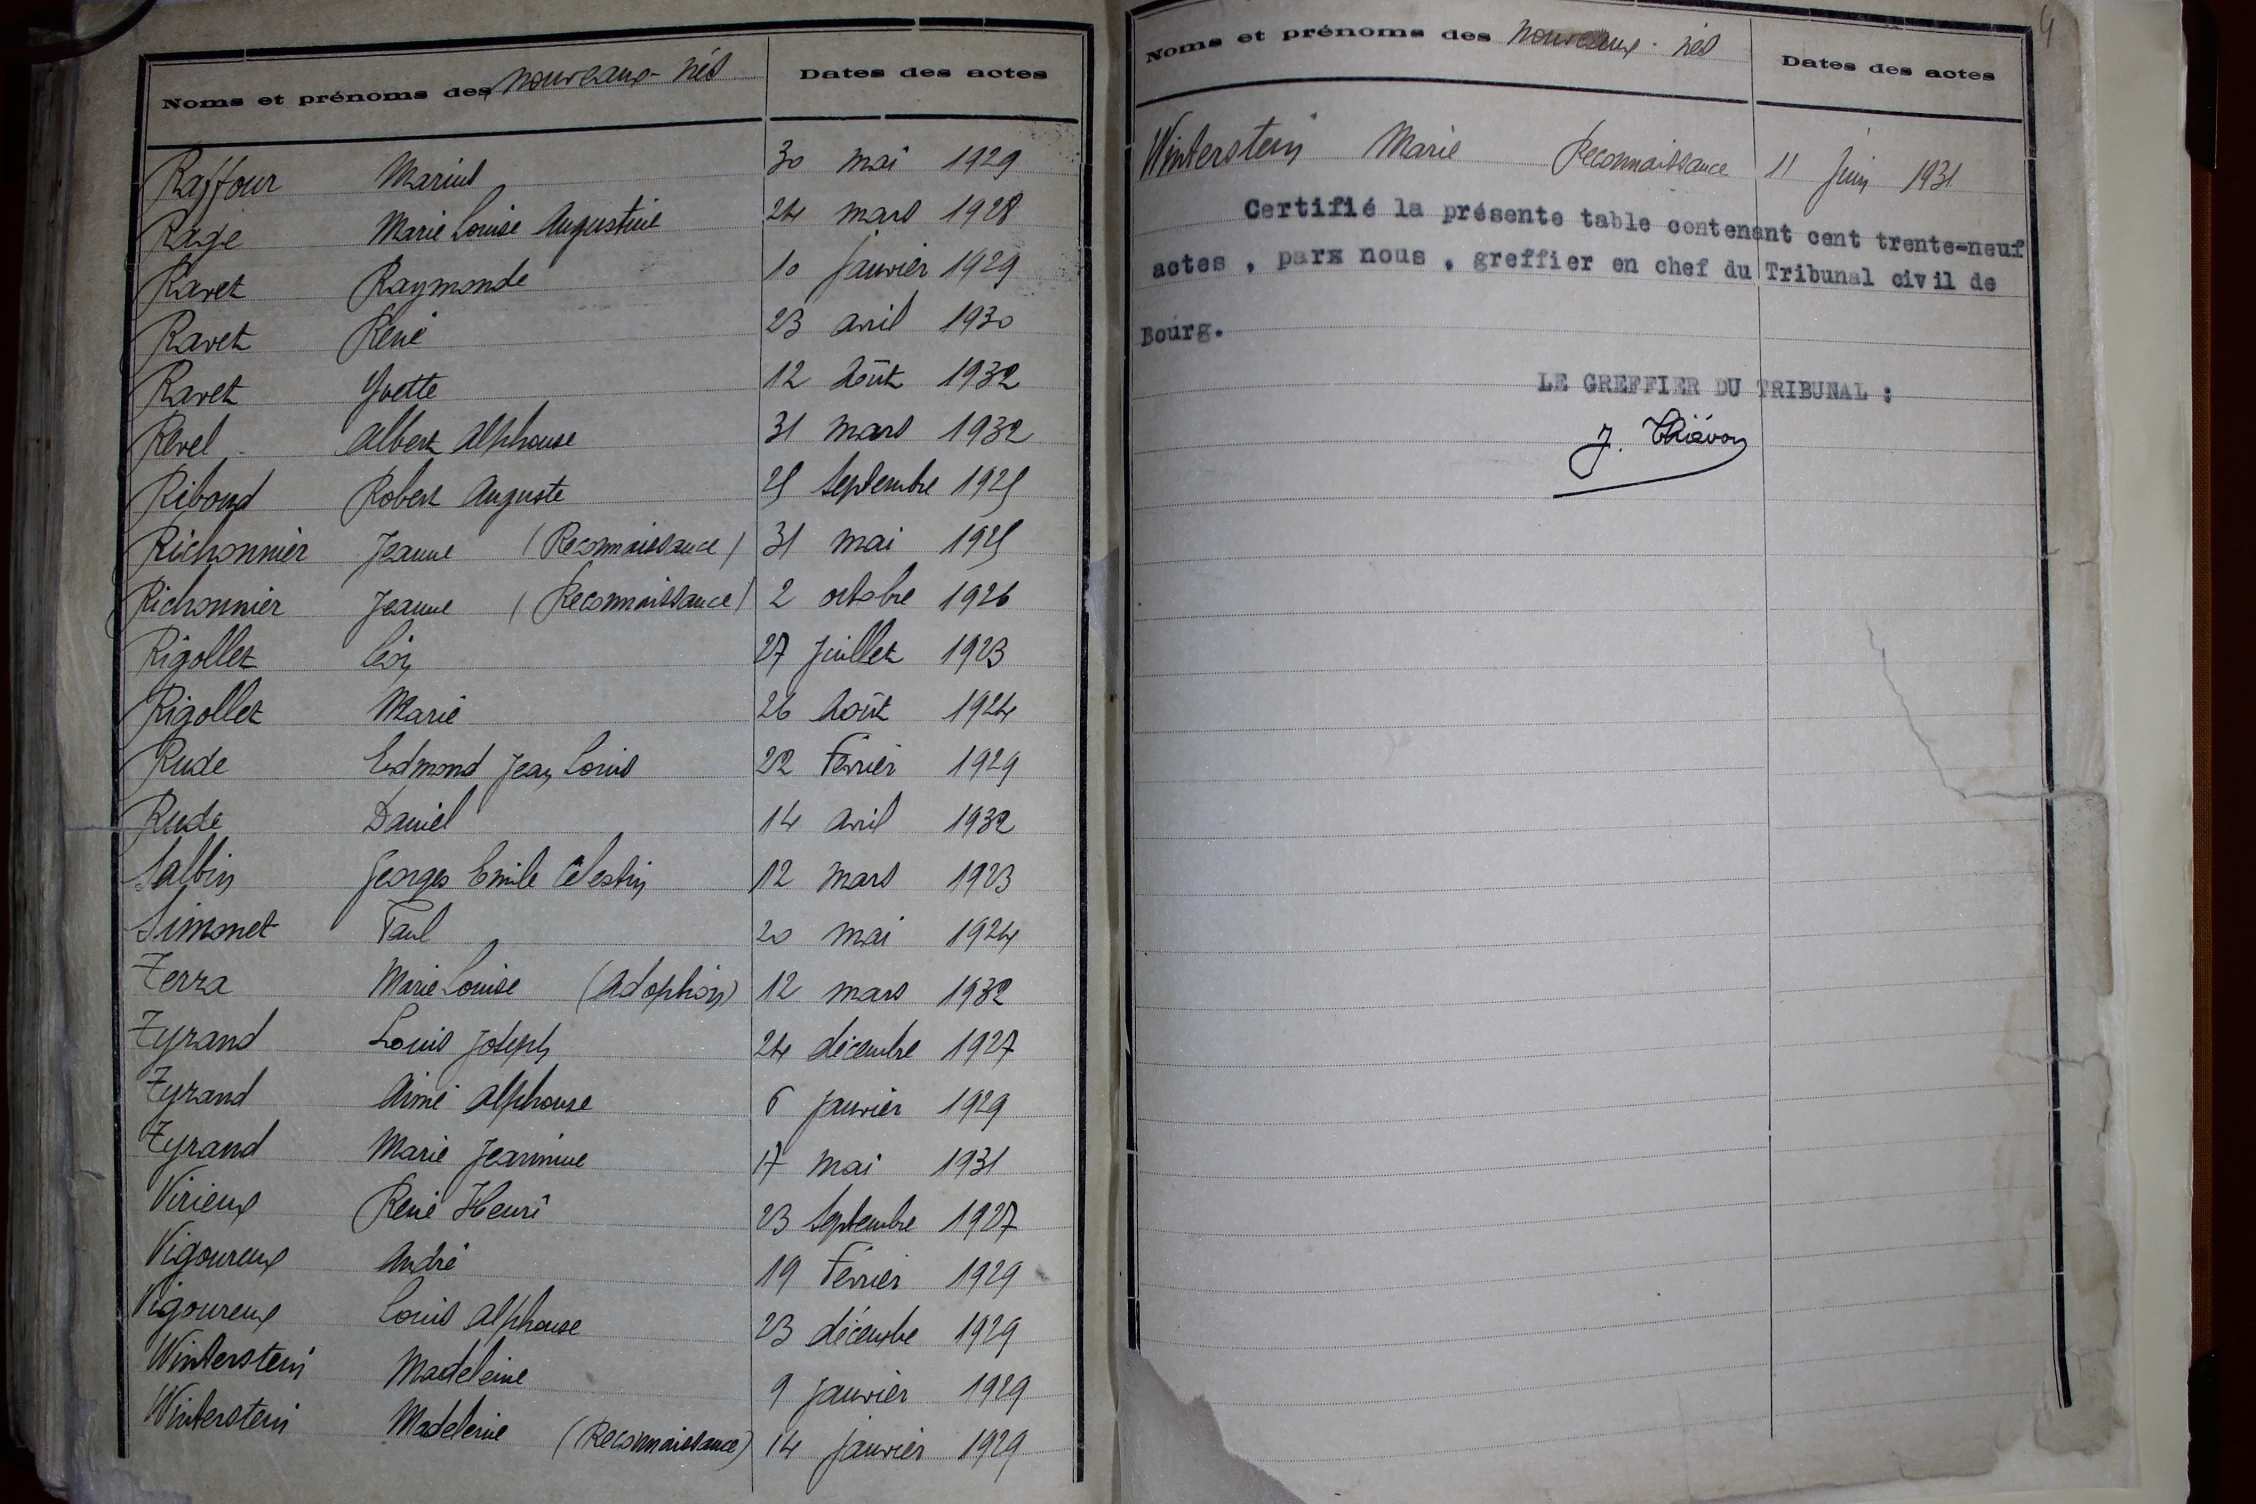 Noms et prénoms des nouveaux-nés Dates des actes
Raffour Marius 30 mai 1929
Ragé Marie Louise Augustine 24 mars 1928
Ravet Raymonde 10 janvier 1929
Ravet René 23 avril 1930
Ravet Yvette 12 Août 1932
Revel Albert Alphonse 31 mars 1932
Riboud Robert Auguste 25 septembre 1925
Richonnier Jeanne (Reconnaissance) 31 mai 1925
Richonnier Jeanne (Reconnaissance) 2 octobre 1926
Rigollet Léon 27 juillet 1923
Rigollet Marie 26 Août 1924
Rude Edmond Jean Louis 22 Février 1929
Rude Daniel 14 avril 1932
Salbin Georges Emile Célestin 12 mars 1923
Simonet Paul 20 mai 1924
Terra Marie Louise (Adoption) 12 mars 1932
Tyrand Louis Joseph 24 décembre 1927
Tyrand Aimé Alphonse 6 janvier 1929
Tyrand Marie Jeannine 17 mai 1931
Virieux René Henri 23 septembre 1927
Vigoureux André 19 Février 1929
Vigoureux Louis Alphonse 23 décembre 1929
Winterstein Madeleine 9 janvier 1929
Winterstein Madeleine (Reconnaissance) 14 janvier 1929
4
Noms et prénoms des nouveaux-nés Dates des actes
Winterstein Marie Reconnaissance 11 Juin 1931
Certifié la présente table contenant cent trente-neuf
actes , parx nous , greffier en chef du Tribunal civil de
Bourg.
LE GREFFIER DU TRIBUNAL :
J. Thiévon